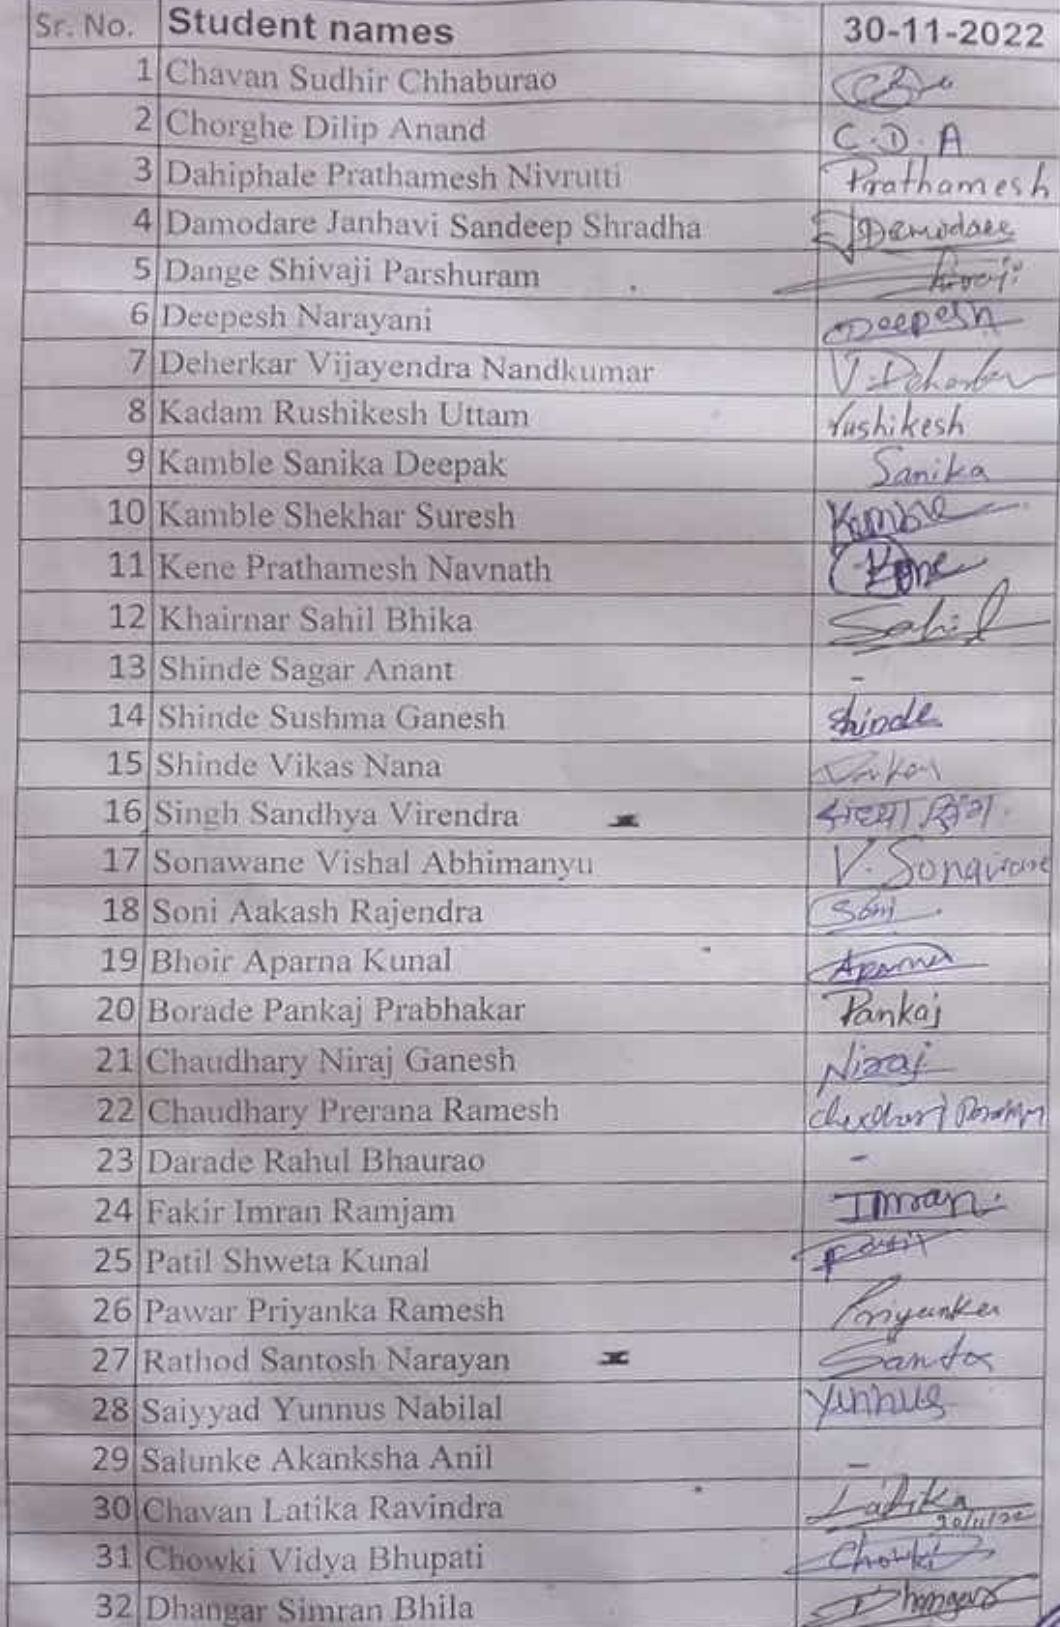 Sr. No. Student names 30-11-2022
1 Chavan Sudhir Chhaburao
2 Chorghe Dilip Anand C.D.A
3 Dahiphale Prathamesh Nivrutti Prathamesh
4 Damodare Janhavi Sandeep Shradha JDamodare
5 Dange Shivaji Parshuram
6 Deepesh Narayani Deepesh
7 Deherkar Vijayendra Nandkumar
8 Kadam Rushikesh Uttam rushikesh
9 Kamble Sanika Deepak Sanika
10 Kamble Shekhar Suresh Kamble
11 Kene Prathamesh Navnath Kene
12 Khairnar Sahil Bhika Sahil
13 Shinde Sagar Anant -
14 Shinde Sushma Ganesh Shinde
15 Shinde Vikas Nana
16 Singh Sandhya Virendra
17 Sonawane Vishal Abhimanyu V. Sonawane
18 Soni Aakash Rajendra Soni
19 Bhoir Aparna Kunal Aparna
20 Borade Pankaj Prabhakar Pankaj
21 Chaudhary Niraj Ganesh Niraj
22 Chaudhary Prerana Ramesh
23 Darade Rahul Bhaurao -
24 Fakir Imran Ramjam Imran.
25 Patil Shweta Kunal
26 Pawar Priyanka Ramesh Priyanka
27 Rathod Santosh Narayan
28 Saiyyad Yunnus Nabilal Yunnus
29 Salunke Akanksha Anil -
30 Chavan Latika Ravindra Latika
30/11/22
31 Chowki Vidya Bhupati Chowki
32 Dhangar Simran Bhila Dhangar